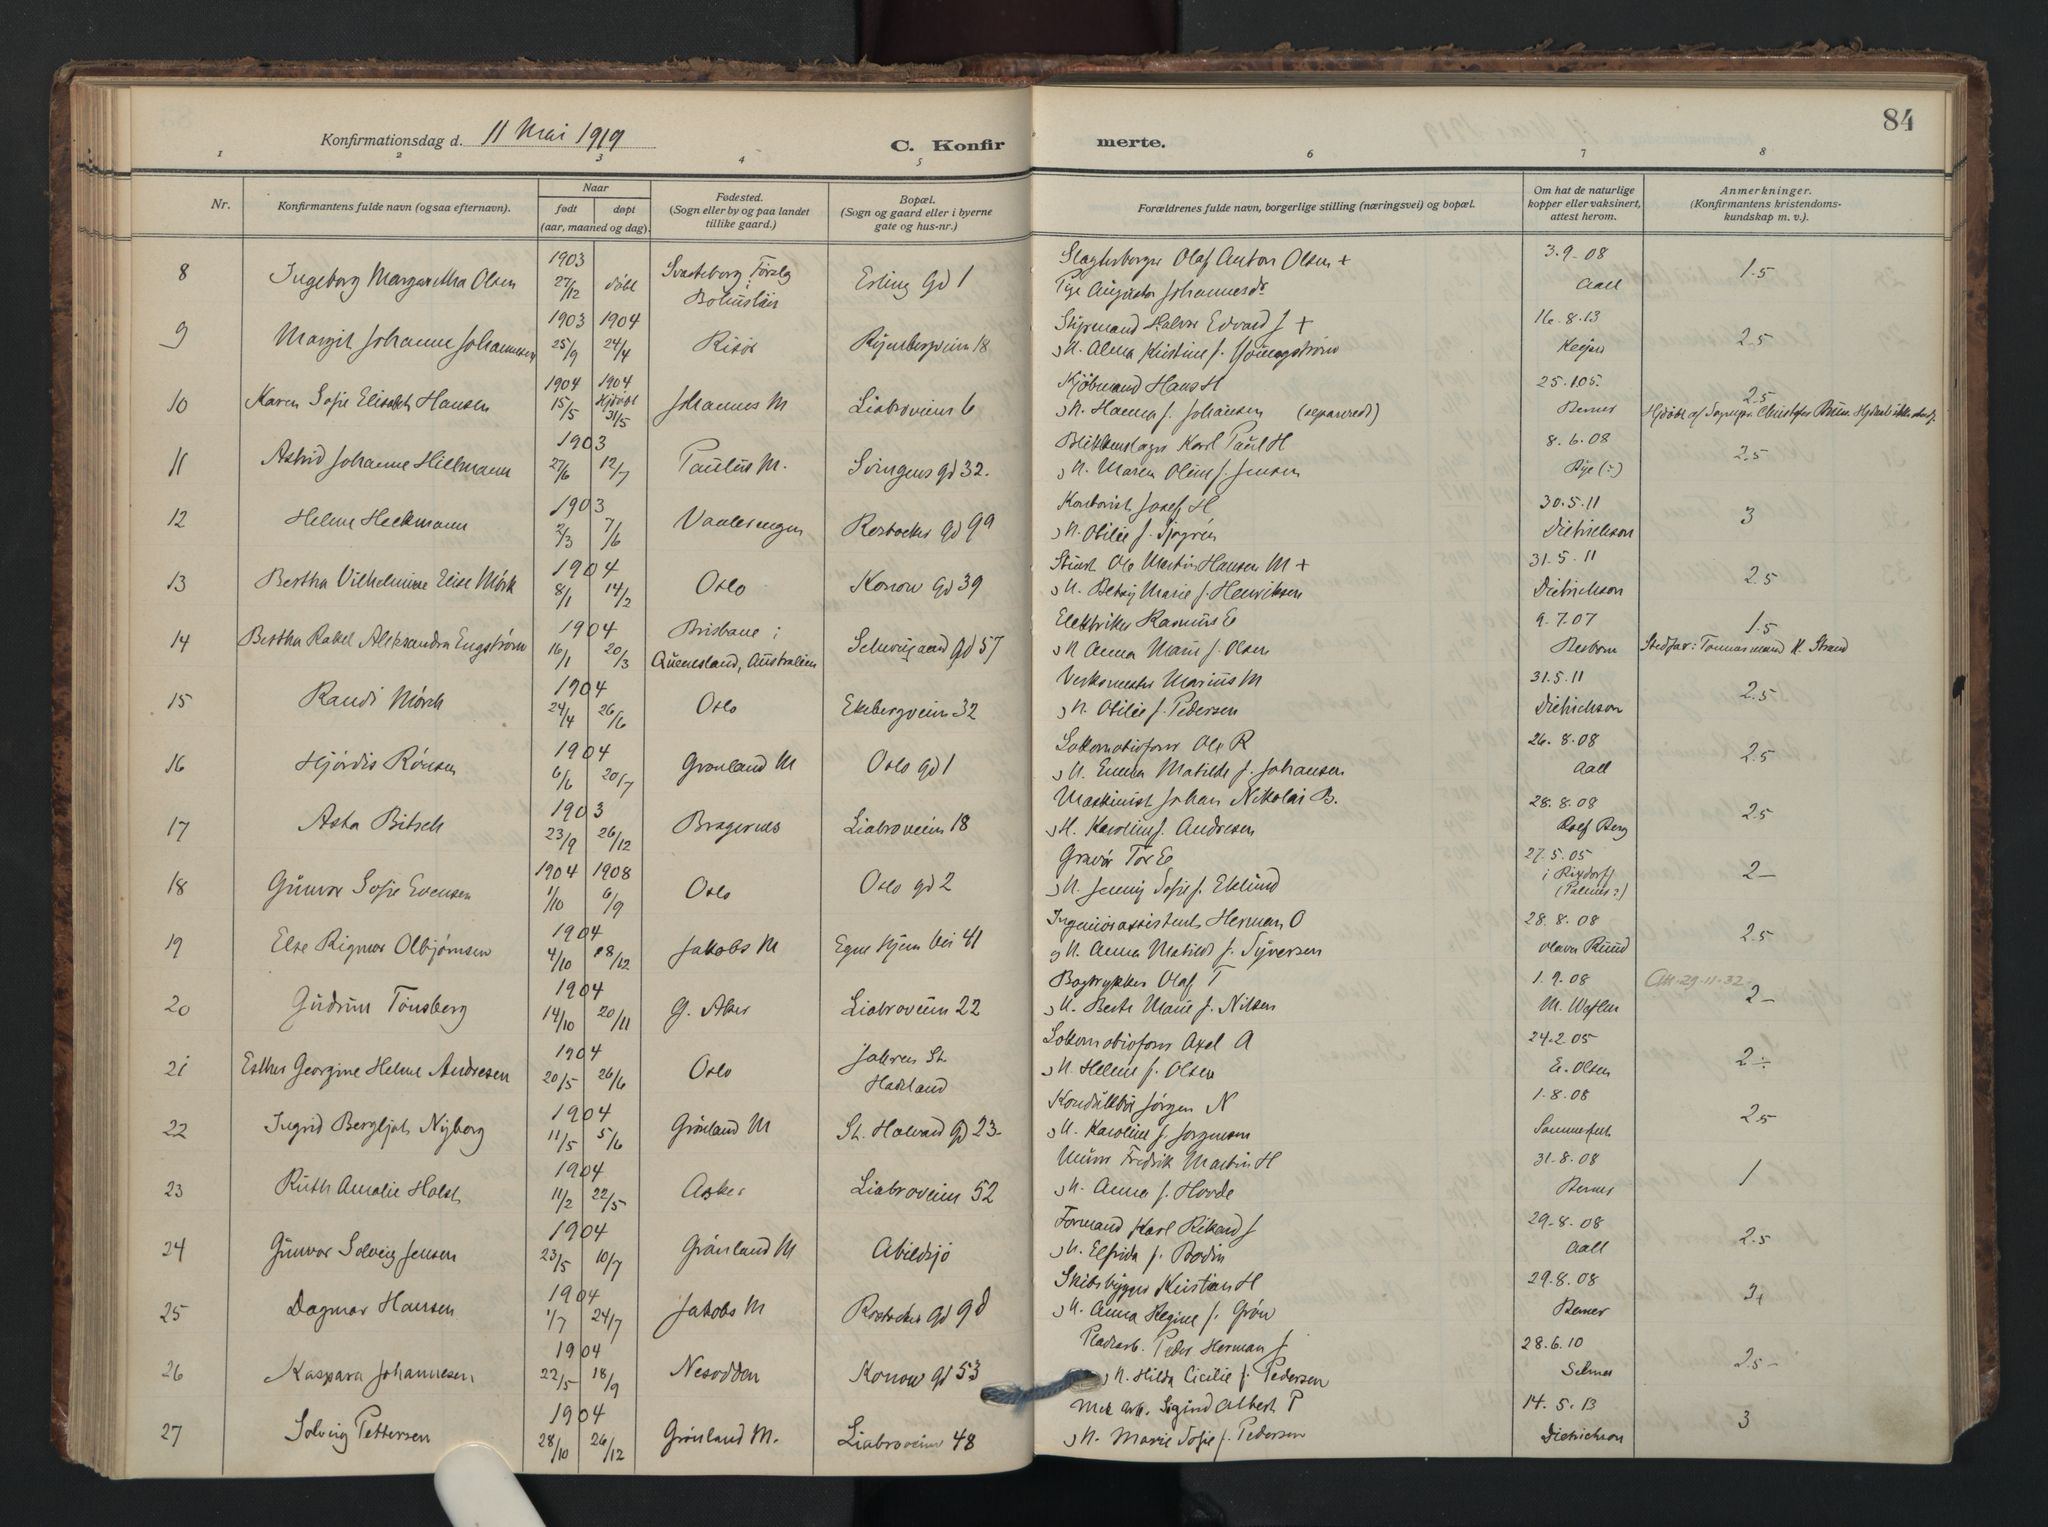 84
Konfirmationsdag d. 11 Mai 1919
C. Konfirmerte.
1 2 3 4 5 6 7 8
Nr.
Konfirmantens fulde navn (ogsaa efternavn).
Naar
født døpt
(aar, maaned og dag).
Fødested.
(Sogn eller by og paa landet
tillike gaard.)
Bopæl.
(Sogn og gaard eller i byerne
gate og hus-nr.)
Forældrenes fulde navn, borgerlige stilling (næringsvei) og bopæl.
Om hat de naturlige
kopper eller vaksinert,
attest herom.
Anmerkninger.
(Konfirmantens kristendoms-
kundskap m. v.).
8 Ingeborg Margaretha Olsen 1903 27/12 døbt Bohuslän Erling gd 1 Olaf Anton Olsen + 3.9-08 1.5
Pige Augusta Johannesdr Aall
9 Margit Johanne Johannesen 1903 25/9 1904 24/4 Risør 18 Styrmand Halvor Edvard J + 16.8.13 2.5
H. Alma Kristine f.
10 Karen Sofie Elisabeth Hansen 1904 15/5 1904 Hjdøbt 31/5 Johannes M Liabroveien 6 Kjøbmand Hans H 25.1.05. 2.5
H. Hanna f. Johansen (separeret) Berner Hjdøbt af Sognepr. Christofer Bruun
11 Astrid Johanne Hillmann 1903 27/6 12/7 Paulus M. Sørengens gd 32. Blikkenslager Karl Paul H 8.6.08 2.5
H. Maren Oline f. Jensen Bye (?)
12 Helene Heckmann 1903 2/3 7/6 Vaalerengen Rostocker gd 99 Josef H 30.5.11 3
H. Otilie f. Sjøgrén Dietrichson
13 Bertha Vilhelmine Elise Mørk 1904 8/1 14/2 Oslo Konow gd 39 Ole Martin Hansen M + 31.5.11 2.5
H. Betsy Marie f. Henriksen Dietrichson
14 Bertha Rakel Aleksandra Engstrøm 1904 16/1 20/3 Brisbane i Queensland, Australien Schweigaard gd 57 Elektriker Rasmus E 9.7.07 1.5
H Anna Marie f. Olsen Stedfar: Tomasmand K. Strand
15 Randi Mørch 1904 24/4 26/6 Oslo Ekebergveien 32 Verksmester Marius M 31.5.11 2.5
H. Otilie f. Pedersen Dietrichson
16 Hjørdis Rønsen 1904 6/6 20/7 Grønland M Oslo gd 1 Lokomotivfører Ole R 26.8.08 2.5
H. Emma Matilde f. Johansen Aall
17 Asta Bitsch 1903 23/9 26/12 Bragernes Liabroveien 18 Maskinist Johan Nikolai B. 28.8.08 2.5
H. Karoline f. Andresen Olof Berg
18 Gunvor Sofie Evensen 1904 1/10 1908 6/9 Oslo Oslo gd 2 Gravør Tor E. 27.5.05 2 —
H. Jenny Sofie f. Eklund i Rixdorf (Palmes?)
19 Else Rigmor Olbjørnsen 1904 4/10 28/12 Jakobs M Egne Hjem vei 41 Ingeniørassistent Herman O 28.8.08 2.5
H. Anna Matilde f. Syversen Olava Ruud
20 Gudrun Tønsberg 1904 14/10 20/11 G. Aker Liabroveien 22 Bogtrykker Olaf T 1.9.08 Att. 29.11.32
H. Berte Marie f. Nilsen 2 —
21 Esther Georgine Helene Andresen 1904 20/5 26/6 Oslo Jahren St. Hadeland Lokomotivfører Axel A 24.2.05 2 ÷
H. Helene f. Olsen E. Olsen
22 Ingrid Bergljot Nyborg 1904 11/5 5/6 Grønland M St. Halvard gd 23 Konduktør Jørgen N 1.8.08 2.5
H. Karoline f. Jørgensen Sommerfelt
23 Ruth Amalie Holst 1904 11/2 22/5 Asker Liabroveien 52 Murer Fredrik Martin H 31.8.08 1
H. Anna f. Hovde Berner
24 Gunvor Solveig Jensen 1904 23/5 10/7 Grønland M Abildsjø Formand Karl Rikard J 29.8.08 2.5
H. Elfrida f. Bodin Aall
25 Dagmar Hansen 1904 1/7 24/7 Jakobs M Rostocker gd 9d Skibsbygger Kristian H 29.8.08
H. Anna Regine f. Grøn Berner
26 Kaspara Johannesen 1904 22/5 18/9 Nesodden Konow gd 53 Pladsarb. Peder Herman J 28.6.10 2.5 -
H. Hilda Cicilie f. Pedersen Selmer
27 Solveig Pettersen 1904 28/10 26/12 Grønland M. Liabroveien 48 Mek arb. Sigurd Albert P 14.5.13 3
H. Marie Sofie f. Pedersen Dietrichson